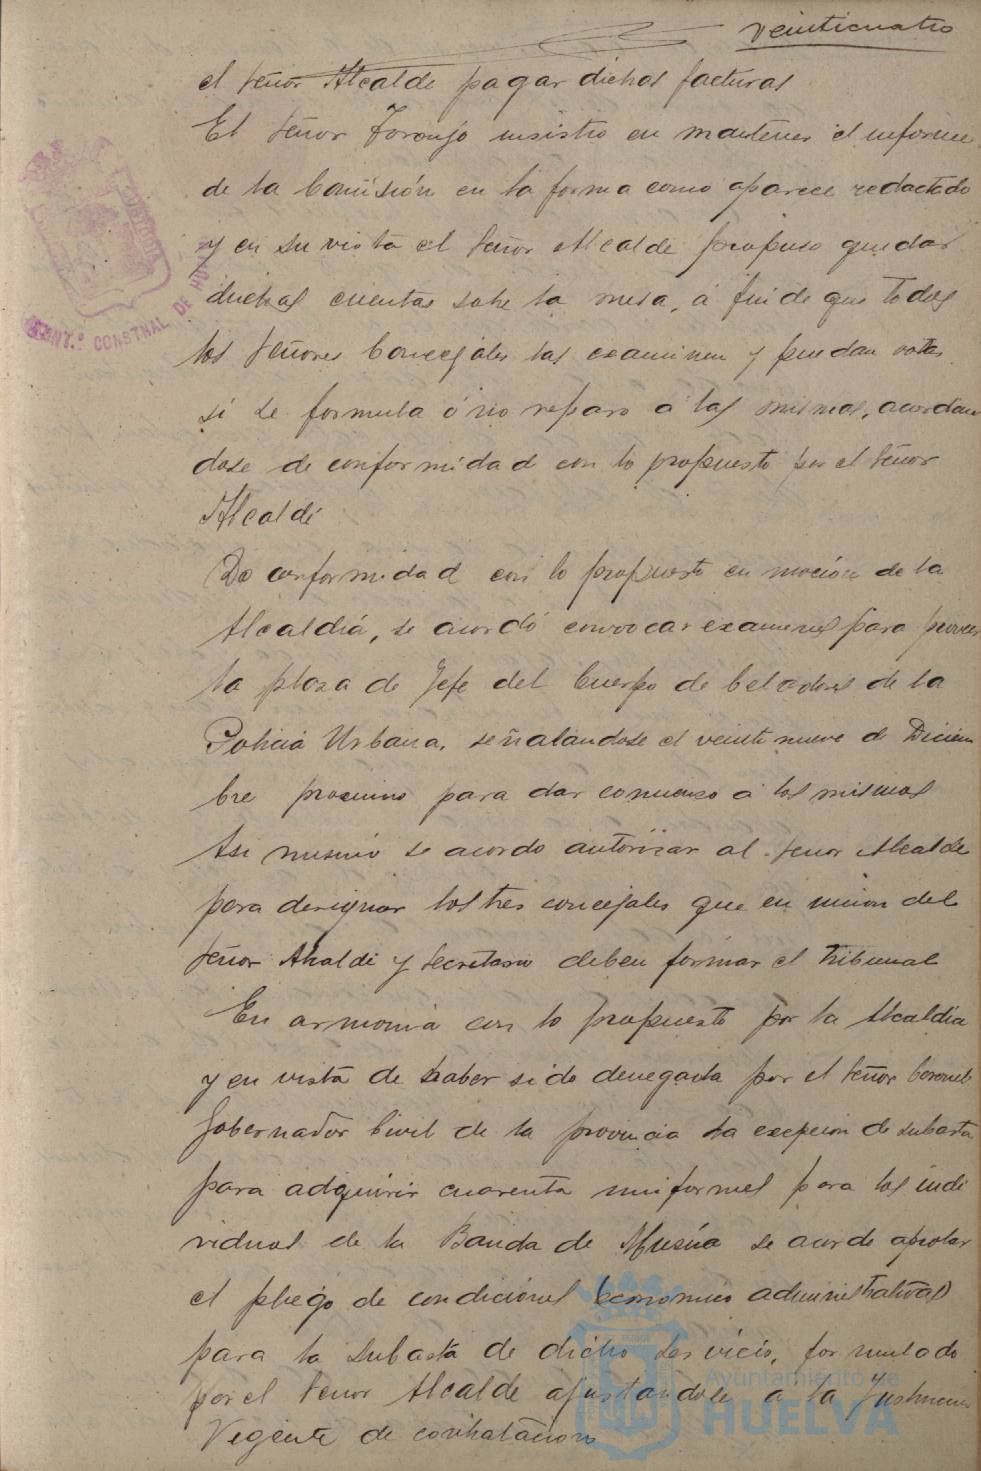 veinticuatro
el señor Alcalde pagar dichas facturas
El señor Toronjo insistio en mantener el informe
de la Comisión en la forma como aparece redactado
y en su vista el señor Alcalde propuso quedar
dichas cuentas sobre la mesa, á fin de que todos
los señores Concejales las examinen y puedan votar
si se formula ó no reparo á las mismas, acordan
dose de conformidad con lo propuesto por el señor
Alcalde
De conformidad con lo propuesto en moción de la
Alcaldia, se acordó convocar examenes para proveer
la plaza de Jefe del Cuerpo de Celadores de la
Policia Urbana, señalandose el veintinueve de Diciem
bre proximo para dar comienzo á los mismos
Asi mismo se acordo autorizar al señor Alcalde
para designar los tres concejales que en union del
señor Alcalde y Secretario deben formar el tribunal
En armonia con lo propuesto por la Alcaldia
y en vista de haber sido denegada por el señor Coronel
Gobernador Civil de la provincia la excepcion de subasta
para adquirir cuarenta uniformes para los indi
viduos de la Banda de Musica se acordo aprobar
el pliego de condiciones economico administrativas
para la subasta de dicho servicio, formulado
por el señor Alcalde ajustandose a la
Vigente de contratacion
AYUNT.º CONSTNAL DE HU
Ayuntamiento de
HUELVA